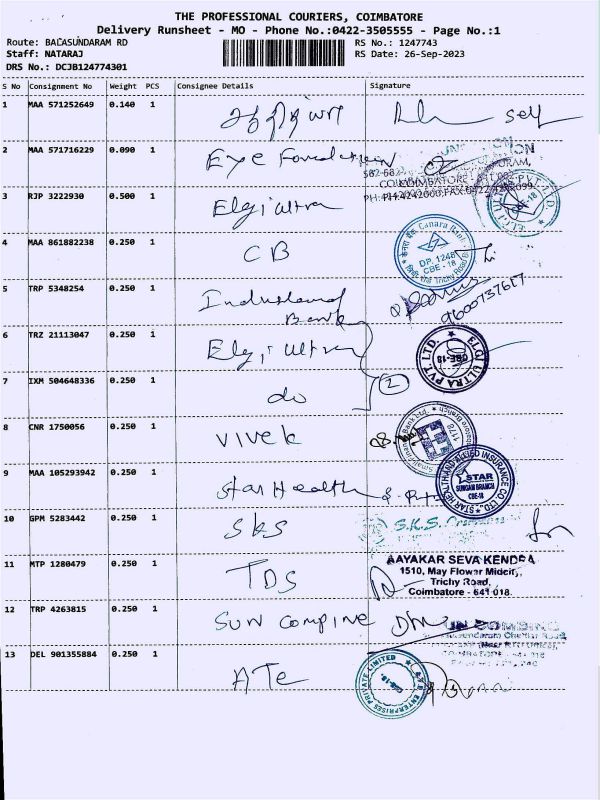 THE PROFESSIONAL COURIERS, COIMBATORE
Delivery Runsheet - MO - Phone No.:0422-3505555 - Page No.:1
Route: BALASUNDARAM RD
Staff: NATARAJ
DRS No.: DCJB124774301
RS No.: 1247743
RS Date: 26-Sep-2023
S No Consignment No Weight PCS Consignee Details Signature
1 MAA 571252649 0.140 1 self
2 MAA 571716229 0.090 1 Eye Foundation
3 RJP 3222930 0.500 1 Elgi ultra
4 MAA 861882238 0.250 1 CB
Canara Bank
DP. 1248
CBE - 18
5 TRP 5348254 0.250 1 Indusland
Bank
9600737617
6 TRZ 21113047 0.250 1 Elgi ultra
ELGI ULTRA PVT. LTD.
CBE-18
7 IXM 504648336 0.250 1 do
2
8 CNR 1750056 0.250 1 vivek
1178
9 MAA 105293942 0.250 1 Star Health
STAR HEALTH AND ALLIED INSURANCE CO. LTD.
STAR
SUNGAM BRANCH
CBE-18
10 GPM 5283442 0.250 1 SKS
S.K.S.
11 MTP 1280479 0.250 1 TDS
AAYAKAR SEVA KENDRA
1510, May Flower Midcity,
Trichy Road,
Coimbatore - 641 018.
12 TRP 4263815 0.250 1 SUN Compine
13 DEL 901355884 0.250 1 ATe
ENTERPRISES PRIVATE LIMITED
CBE-18